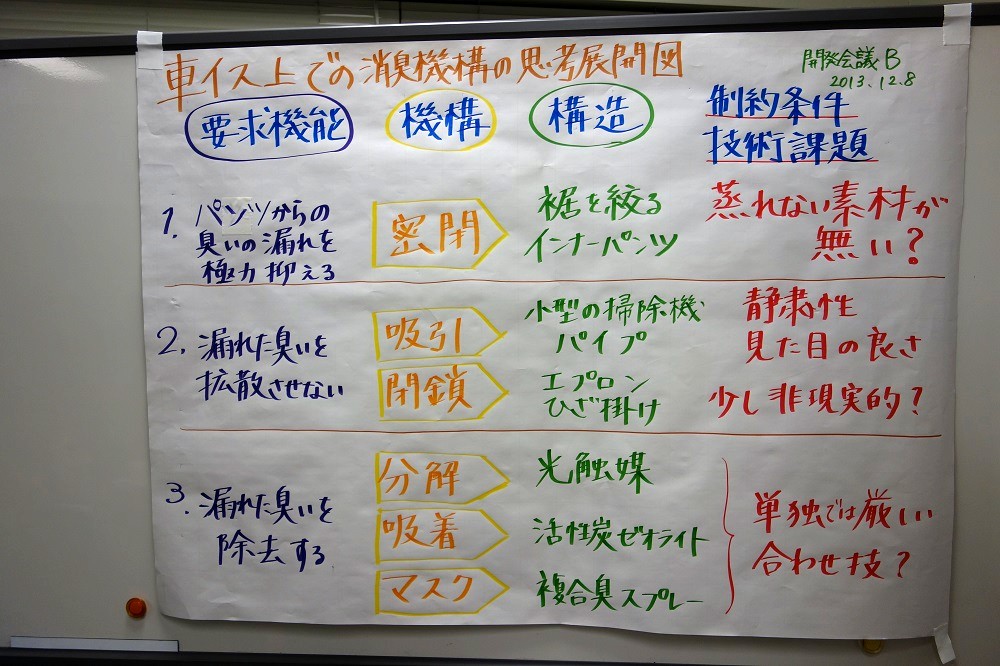 車イス上での消臭機構の思考展開図
開発会議B
2013.12.8
要求機能
機構
構造
制約条件
技術課題
1.
パンツからの
臭いの漏れを
極力抑える
密閉
裾を絞る
インナーパンツ
蒸れない素材が
無い?
2.
漏れた臭いを
拡散させない
吸引
小型の掃除機
パイプ
静粛性
見た目の良さ
閉鎖
エプロン
ひざ掛け
少し非現実的?
3.
漏れた臭いを
除去する
分解
光触媒
吸着
活性炭ゼオライト
マスク
複合臭スプレー
単独では厳しい
合わせ技?